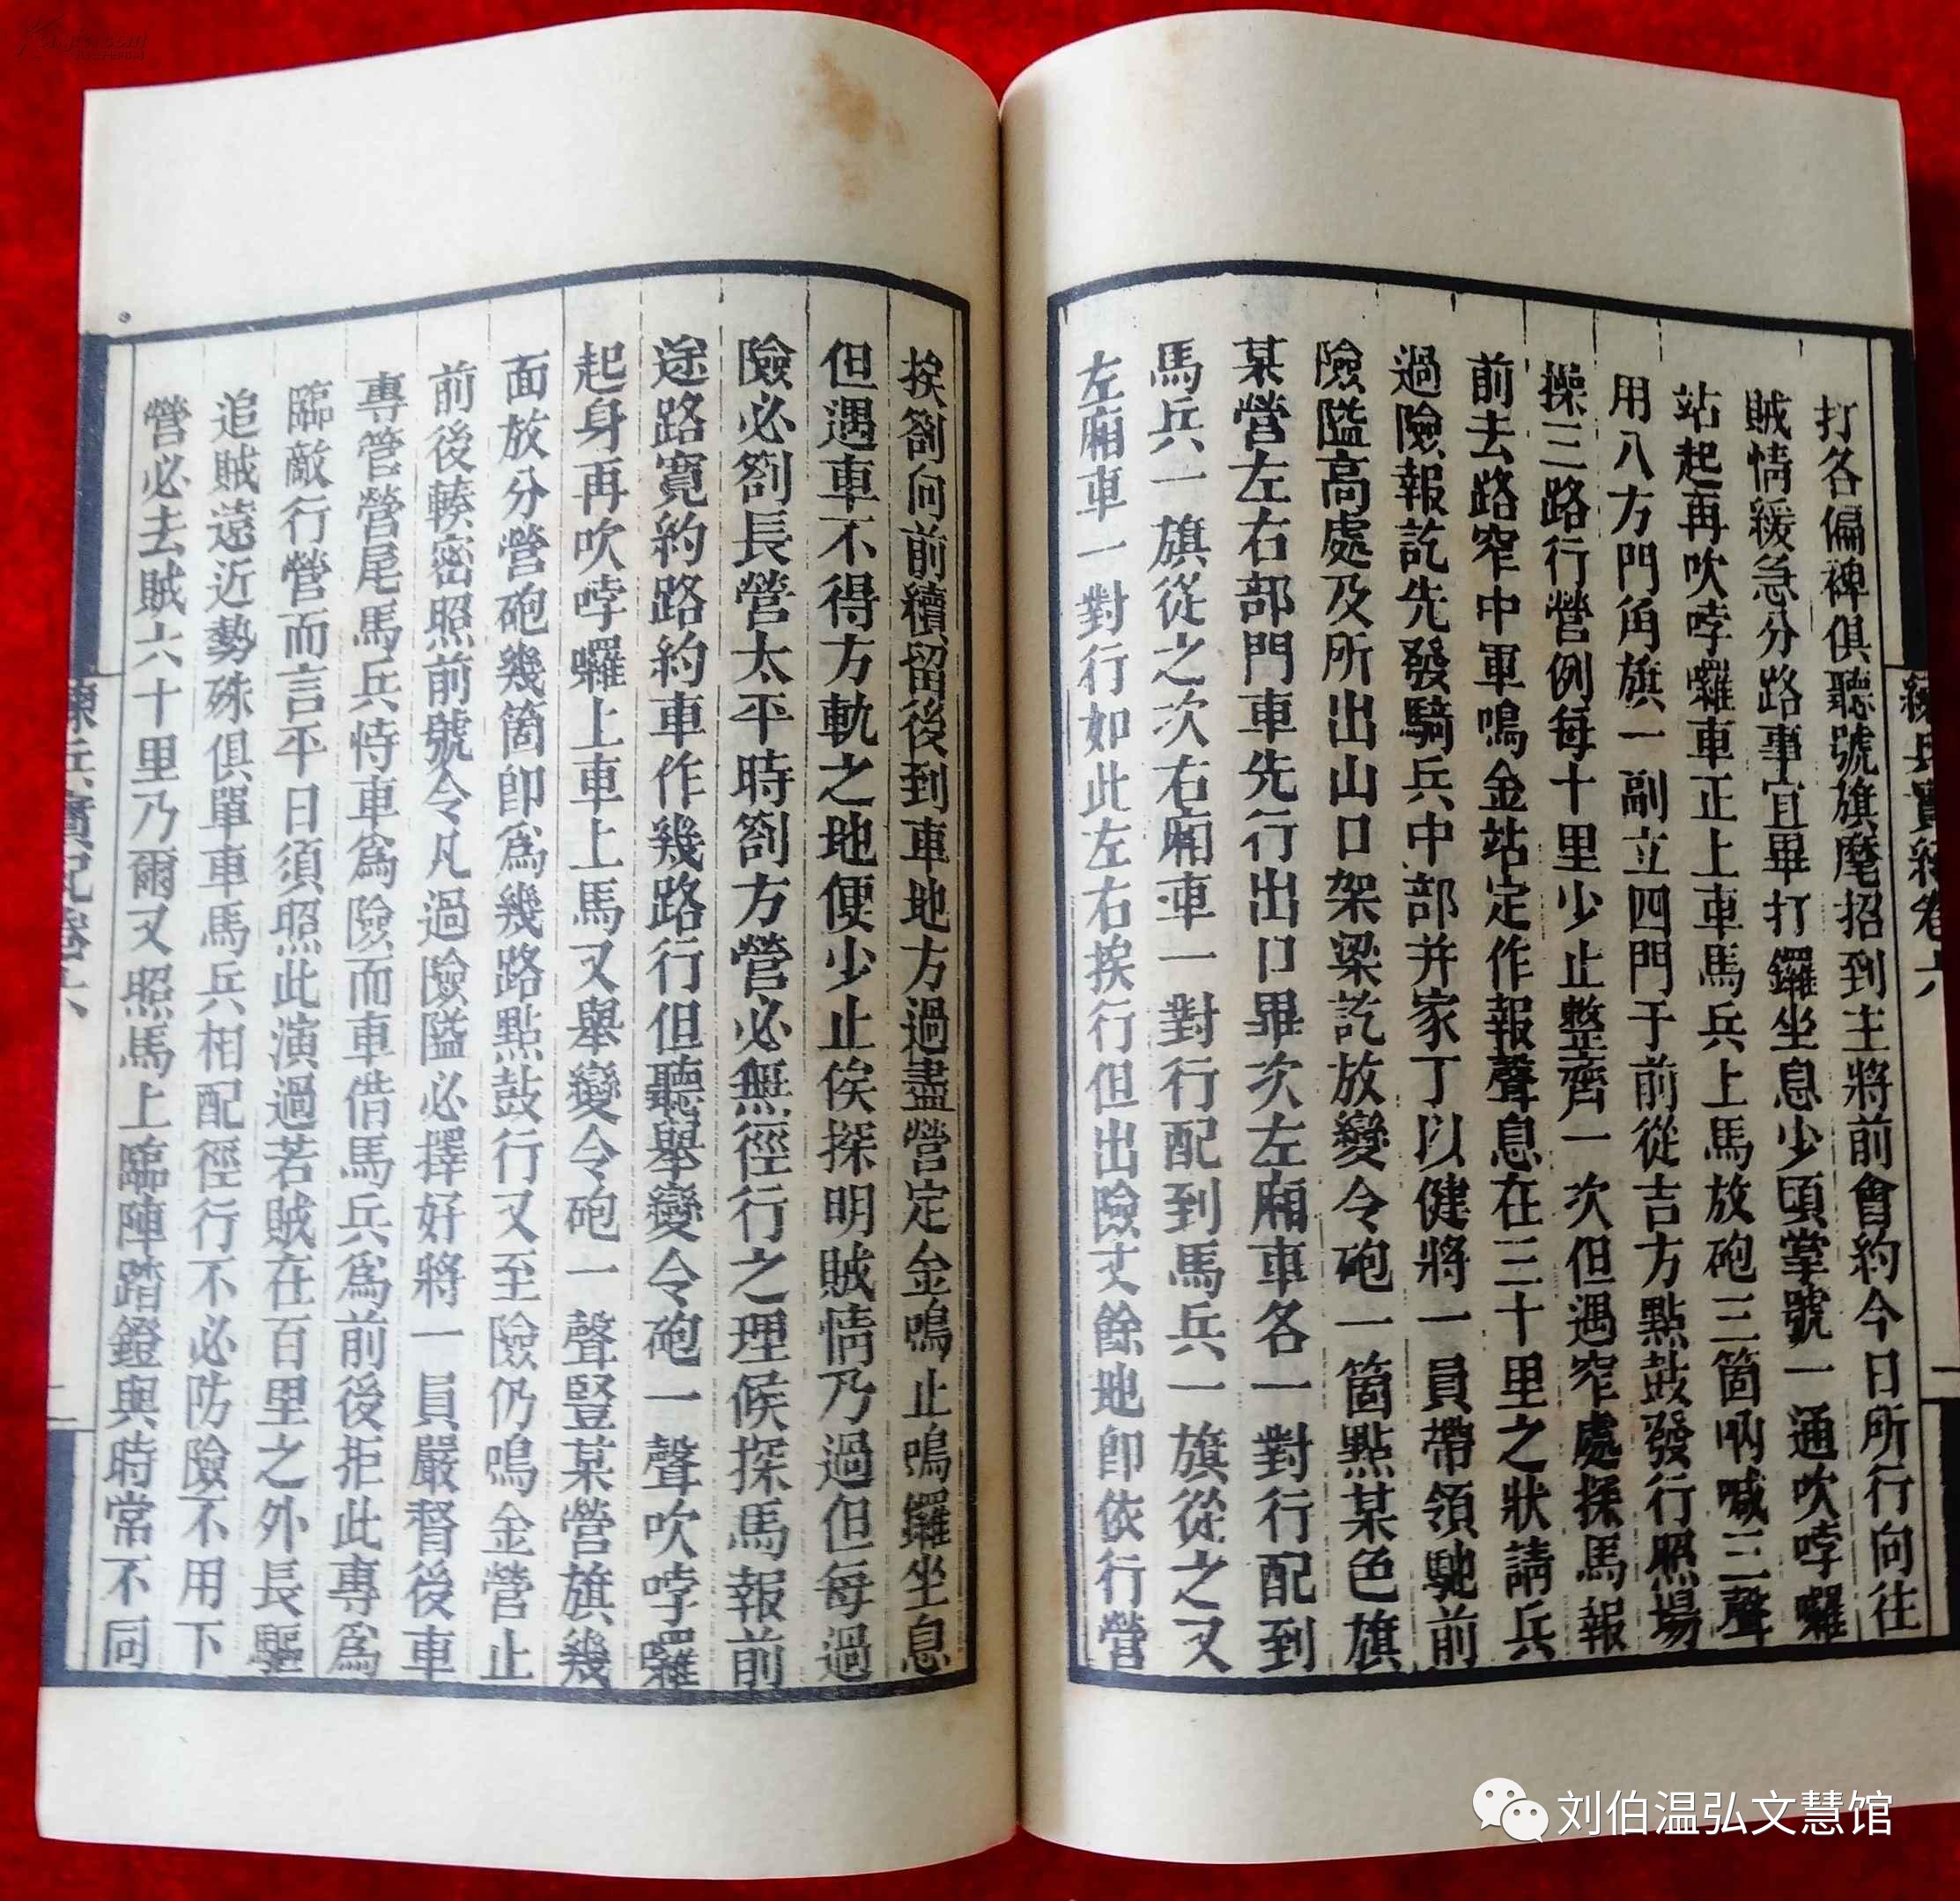 打各偏裨俱聽號旗麾招到主將前會約今日所行向往
賊情緩急分路事宜畢打鑼坐息少頃掌號一通吹哱囉
站起再吹哱囉車正上車馬兵上馬放砲三箇吶喊三聲
用八方門角旗一副立四門于前從吉方點鼓發行照場
操三路行營例每十里少止整齊一次但遇窄處探馬報
前去路窄中軍鳴金站定作報聲息在三十里之狀請兵
過險報訖先發騎兵中部并家丁以健將一員帶領馳前
險隘高處及所出山口架梁訖放變令砲一箇點某色旗
某營左右部門車先行出口畢次左廂車各一對行配到
馬兵一旗從之次右廂車一對行配到馬兵一旗從之又
左廂車一對行如此左右挨行但出險丈餘地卽依行營
練兵實紀卷六
挨劄向前續留後到車地方過盡營定金鳴止鳴鑼坐息
但遇車不得方軌之地便少止俟探明賊情乃過但每過
險必劄長營太平時劄方營必無徑行之理候探馬報前
途路寬約路約車作幾路行但聽舉變令砲一聲吹哱囉
起身再吹哱囉上車上馬又舉變令砲一聲豎某營旗幾
面放分營砲幾箇卽爲幾路點鼓行又至險仍鳴金營止
前後輳密照前號令凡過險隘必擇好將一員嚴督後車
專管營尾馬兵恃車爲險而車借馬兵爲前後拒此專爲
臨敵行營而言平日須照此演過若賊在百里之外長驅
追賊遠近勢殊俱單車馬兵相配徑行不必防險不用下
營必去賊六十里乃爾又照馬上臨陣踏鐙與時常不同
練兵實紀卷六
二
刘伯温弘文慧馆